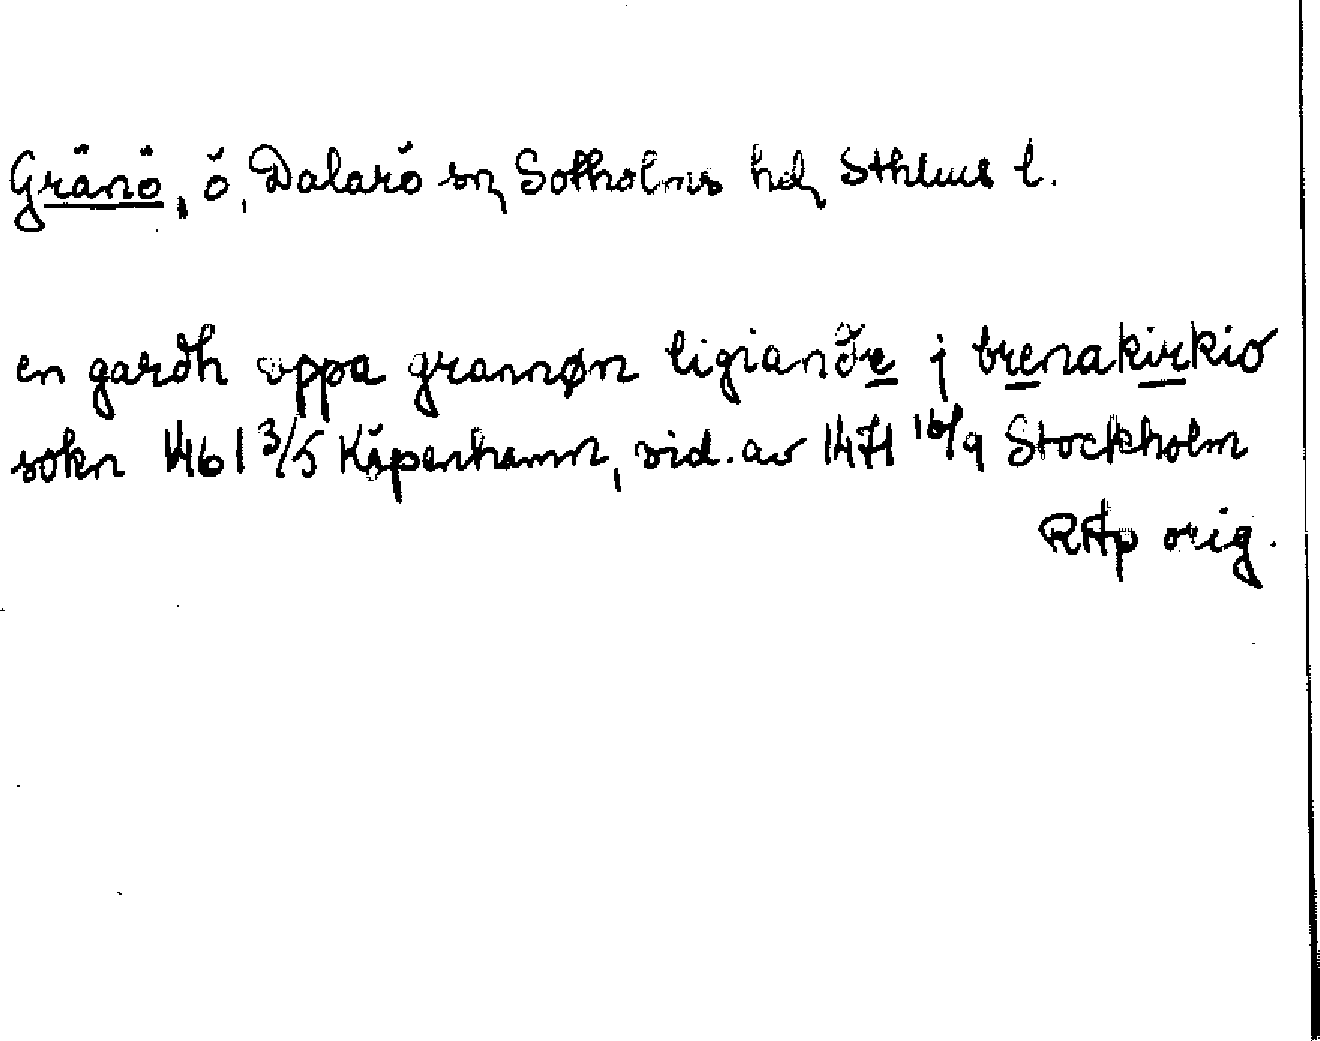 Gränö, ö, Dalarö sn Sotholms hd Sthlms l.
en gardh oppa gramøn ligiandre j brenakirkio
sokn 1461 3/5 Köpenhamn, vid. av 1471 16/9 Stockholm
RAp orig.